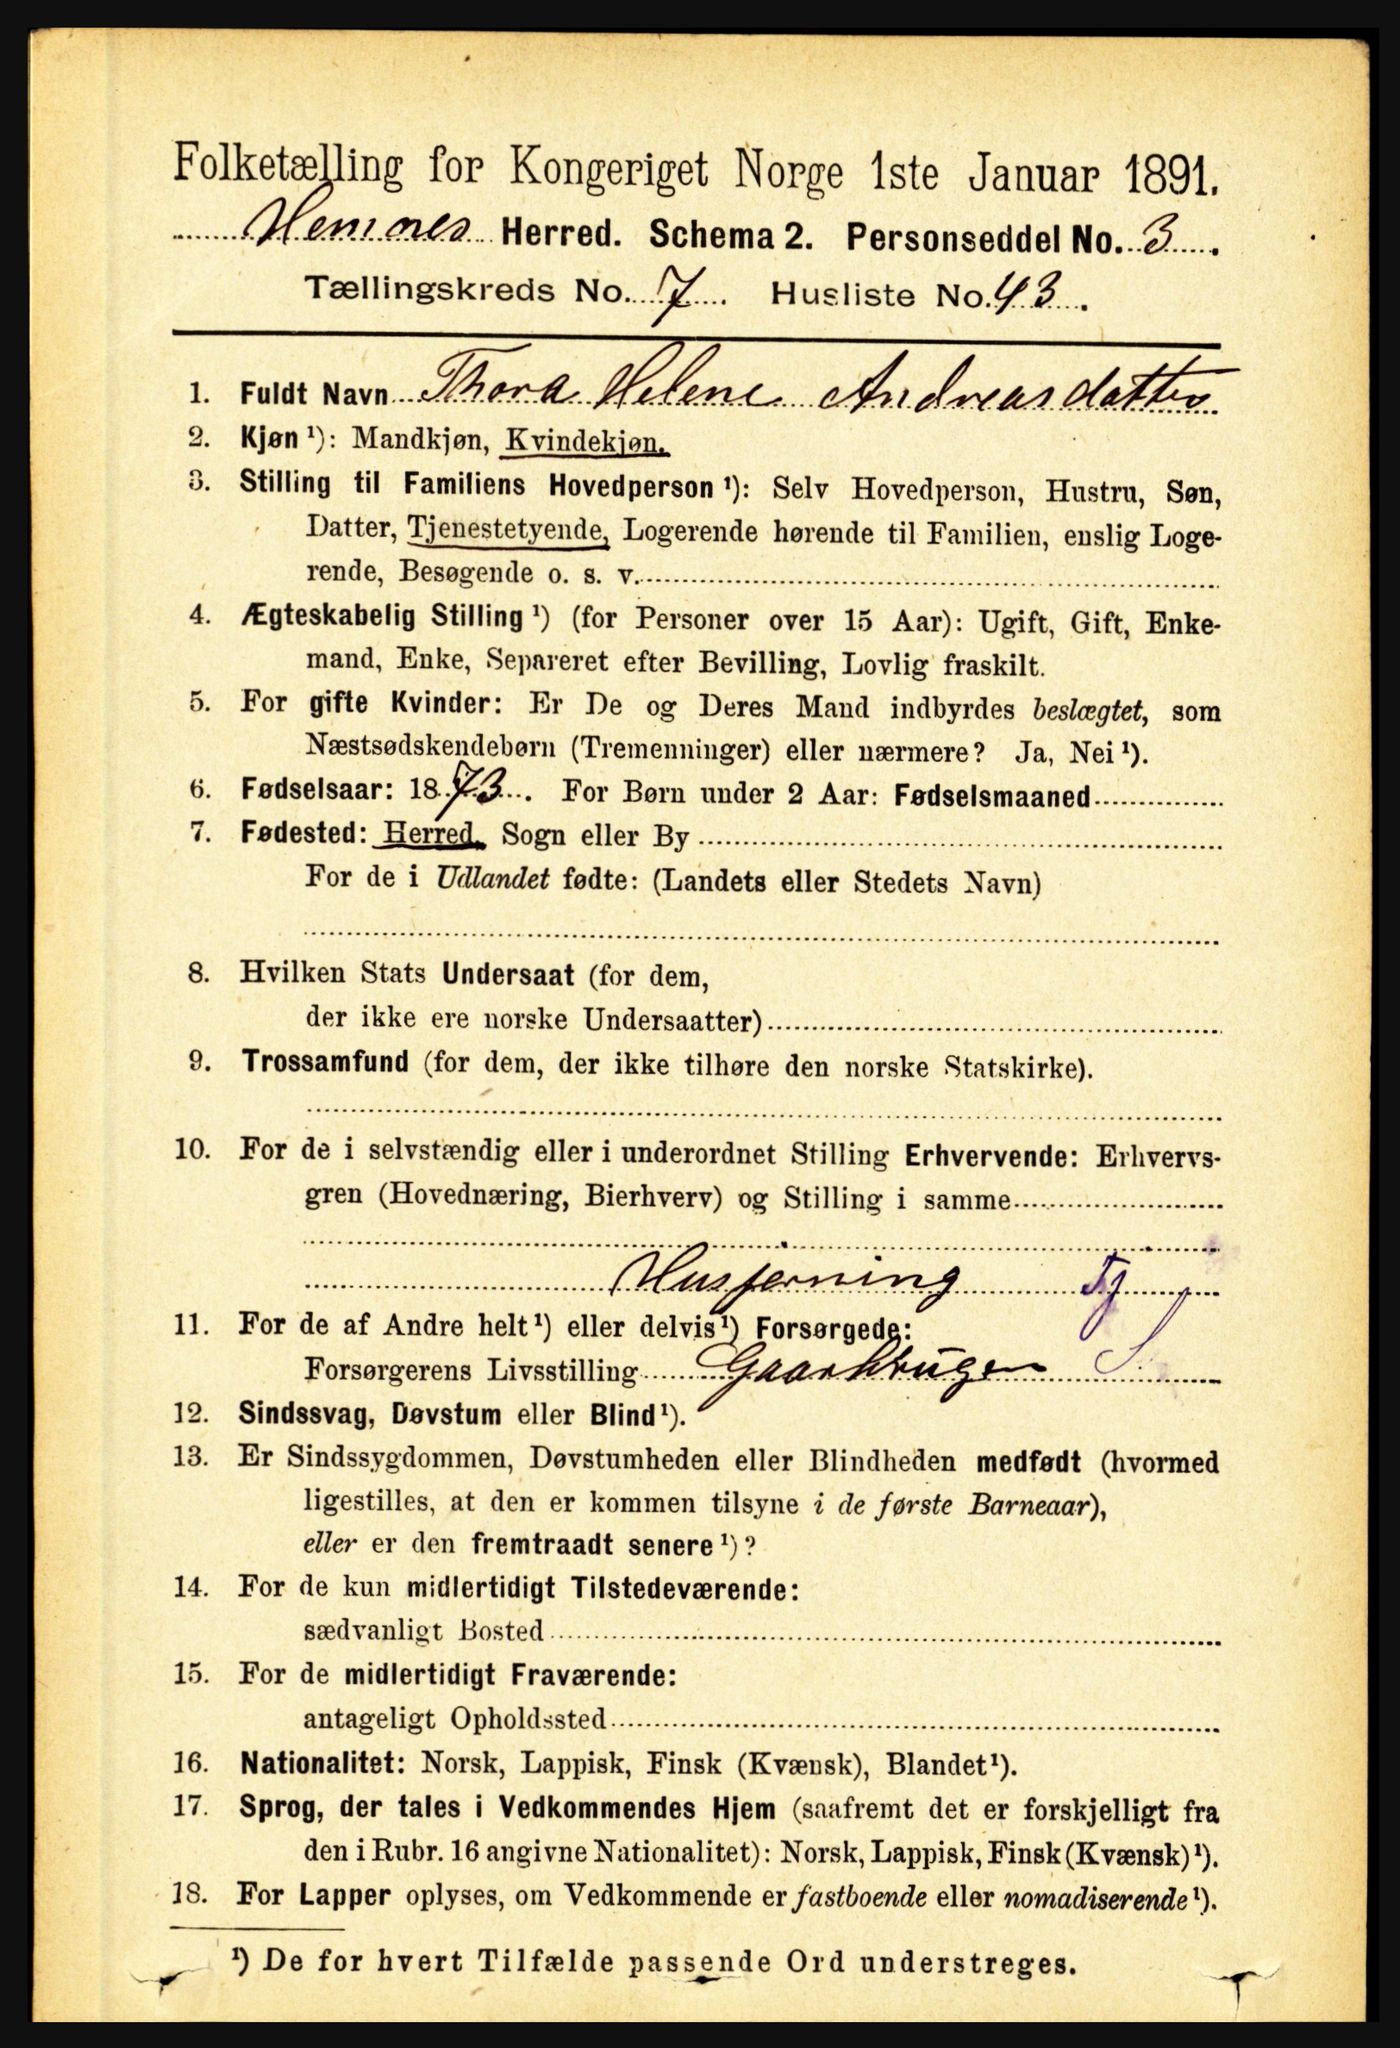 Folketælling for Kongeriget Norge 1ste Januar 1891.
Hemnes Herred. Schema 2. Personseddel No. 3.
Tællingskreds No. 7. Husliste No. 43.
1. Fuldt Navn Thora Helene Andreasdatter
2. Kjøn ¹): Mandkjøn, Kvindekjøn.
3. Stilling til Familiens Hovedperson ¹): Selv Hovedperson, Hustru, Søn,
Datter, Tjenestetyende, Logerende hørende til Familien, enslig Loge-
rende, Besøgende o. s. v.
4. Ægteskabelig Stilling ¹) (for Personer over 15 Aar): Ugift, Gift, Enke-
mand, Enke, Separeret efter Bevilling, Lovlig fraskilt.
5. For gifte Kvinder: Er De og Deres Mand indbyrdes beslægtet, som
Næstsødskendebørn (Tremenninger) eller nærmere? Ja, Nei ¹).
6. Fødselsaar: 1873. For Børn under 2 Aar: Fødselsmaaned
7. Fødested: Herred, Sogn eller By
For de i Udlandet fødte: (Landets eller Stedets Navn)
8. Hvilken Stats Undersaat (for dem,
der ikke ere norske Undersaatter)
9. Trossamfund (for dem, der ikke tilhøre den norske Statskirke).
10. For de i selvstændig eller i underordnet Stilling Erhvervende: Erhvervs-
gren (Hovednæring, Bierhverv) og Stilling i samme
Husjerning Tj
11. For de af Andre helt ¹) eller delvis ¹) Forsørgede:
Forsørgerens Livsstilling Gaardbruger S
12. Sindssvag, Døvstum eller Blind ¹).
13. Er Sindssygdommen, Døvstumheden eller Blindheden medfødt (hvormed
ligestilles, at den er kommen tilsyne i de første Barneaar),
eller er den fremtraadt senere ¹)?
14. For de kun midlertidigt Tilstedeværende:
sædvanligt Bosted
15. For de midlertidigt Fraværende:
antageligt Opholdssted
16. Nationalitet: Norsk, Lappisk, Finsk (Kvænsk), Blandet ¹).
17. Sprog, der tales i Vedkommendes Hjem (saafremt det er forskjelligt fra
den i Rubr. 16 angivne Nationalitet): Norsk, Lappisk, Finsk (Kvænsk) ¹).
18. For Lapper oplyses, om Vedkommende er fastboende eller nomadiserende ¹).
¹) De for hvert Tilfælde passende Ord understreges.